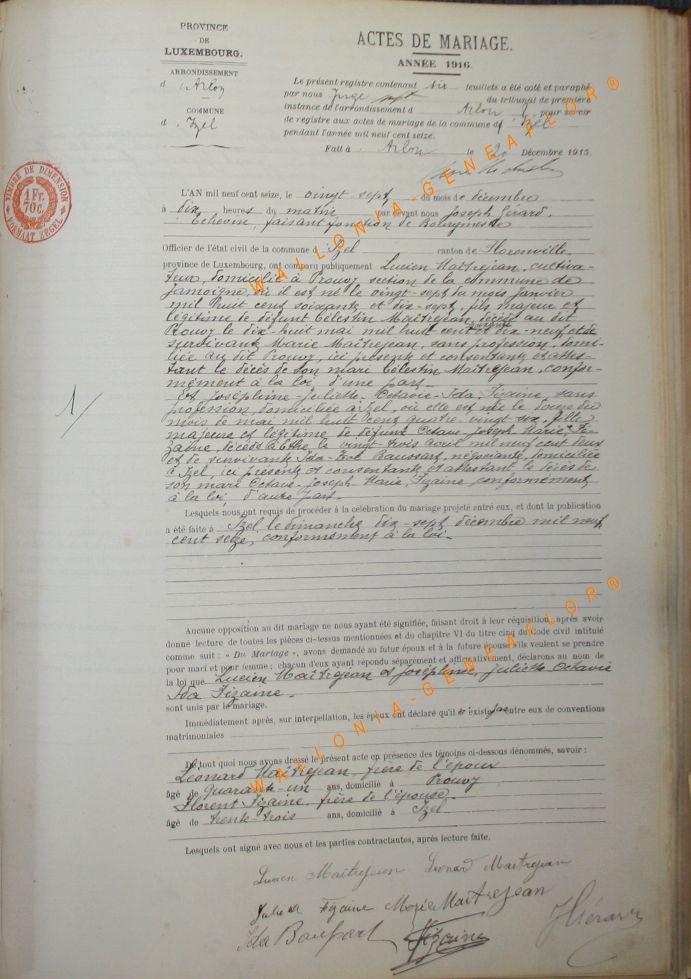 PROVINCE
DE
LUXEMBOURG.
ARRONDISSEMENT
d'Arlon
COMMUNE
d'Izel
TIMBRE DE DIMENSION
1 Fr.
70c.
FORMAAT ZEGEL
ACTES DE MARIAGE.
ANNÉE 1916.
Le présent registre contenant six feuillets a été coté et paraphé
par nous Juge du tribunal de première
instance de l'arrondissement d'Arlon pour servir
de registre aux actes de mariage de la commune d'Izel
pendant l'année mil neuf cent seize.
Fait à Arlon le 20 Décembre 1915.
L'AN mil neuf cent seize, le vingt sept du mois de décembre
à dix heures du matin par devant nous Joseph Gérard,
Echevin, faisant fonction de Bourgmestre
Officier de l'état civil de la commune d'Izel canton de Florenville
province de Luxembourg, ont comparu publiquement Lucien Maîtrejean, cultiva-
teur, domicilié à Prouvy section de la commune de
Jamoigne, où il est né le vingt-sept du mois janvier
mil huit cent soixante et dix-sept, fils majeur et
légitime de défunt Célestin Maîtrejean, décédé au dit
Prouvy le dix-huit mai mil huit cent dix-neuf et de
survivante Marie Maîtrejean, sans profession, domi-
ciliée au dit Prouvy, ici présente et consentante et attes-
tant le décès de son mari Célestin Maîtrejean, confor-
mément à la loi, d'une part.
Et Joséphine-Juliette-Octavie-Ida Fizaine, sans
profession, domiciliée à Izel, où elle est née le douze du
mois de mai mil huit cent quatre-vingt-six, fille
majeure et légitime de défunt Octave Joseph Marie Fi-
zaine, décédé à Ethe, le vingt-trois avril mil neuf cent deux
et de survivante Ida- négociante, domiciliée
à Izel, ici présente et consentante et attestant le décès de
son mari Octave-Joseph Marie, Fizaine, conformément
à la loi, d'autre part.
Lesquels nous ont requis de procéder à la célébration du mariage projeté entre eux, et dont la publication
a été faite à Izel le dimanche dix-sept décembre mil neuf
cent seize, conformément à la loi.
1/
Aucune opposition au dit mariage ne nous ayant été signifiée, faisant droit à leur réquisition, après avoir
donné lecture de toutes les pièces ci-dessus mentionnées et du chapitre VI du titre cinq du Code civil intitulé
comme suit : « Du Mariage », avons demandé au futur époux et à la future épouse s'ils veulent se prendre
pour mari et pour femme ; chacun d'eux ayant répondu séparément et affirmativement, déclarons au nom de
la loi que Lucien Maîtrejean et Joséphine, Juliette Octavie
Ida Fizaine
sont unis par le mariage.
Immédiatement après, sur interpellation, les époux ont déclaré qu'il n'existe pas entre eux de conventions
matrimoniales
De tout quoi nous avons dressé le présent acte en présence des témoins ci-dessous dénommés, savoir :
Léonard Maîtrejean, frère de l'époux
âgé de quarante-un ans, domicilié à Prouvy
Florent Fizaine, frère de l'épouse
âgé de trente-trois ans, domicilié à Izel
Lesquels ont signé avec nous et les parties contractantes, après lecture faite.
Lucien Maîtrejean Léonard Maitrejean
Juliette Fizaine Marie Maitrejean
Ida
Fizaine
J Gérard
WALLONIA-GENEAFLOR®
WALLONIA-GENEAFLOR®